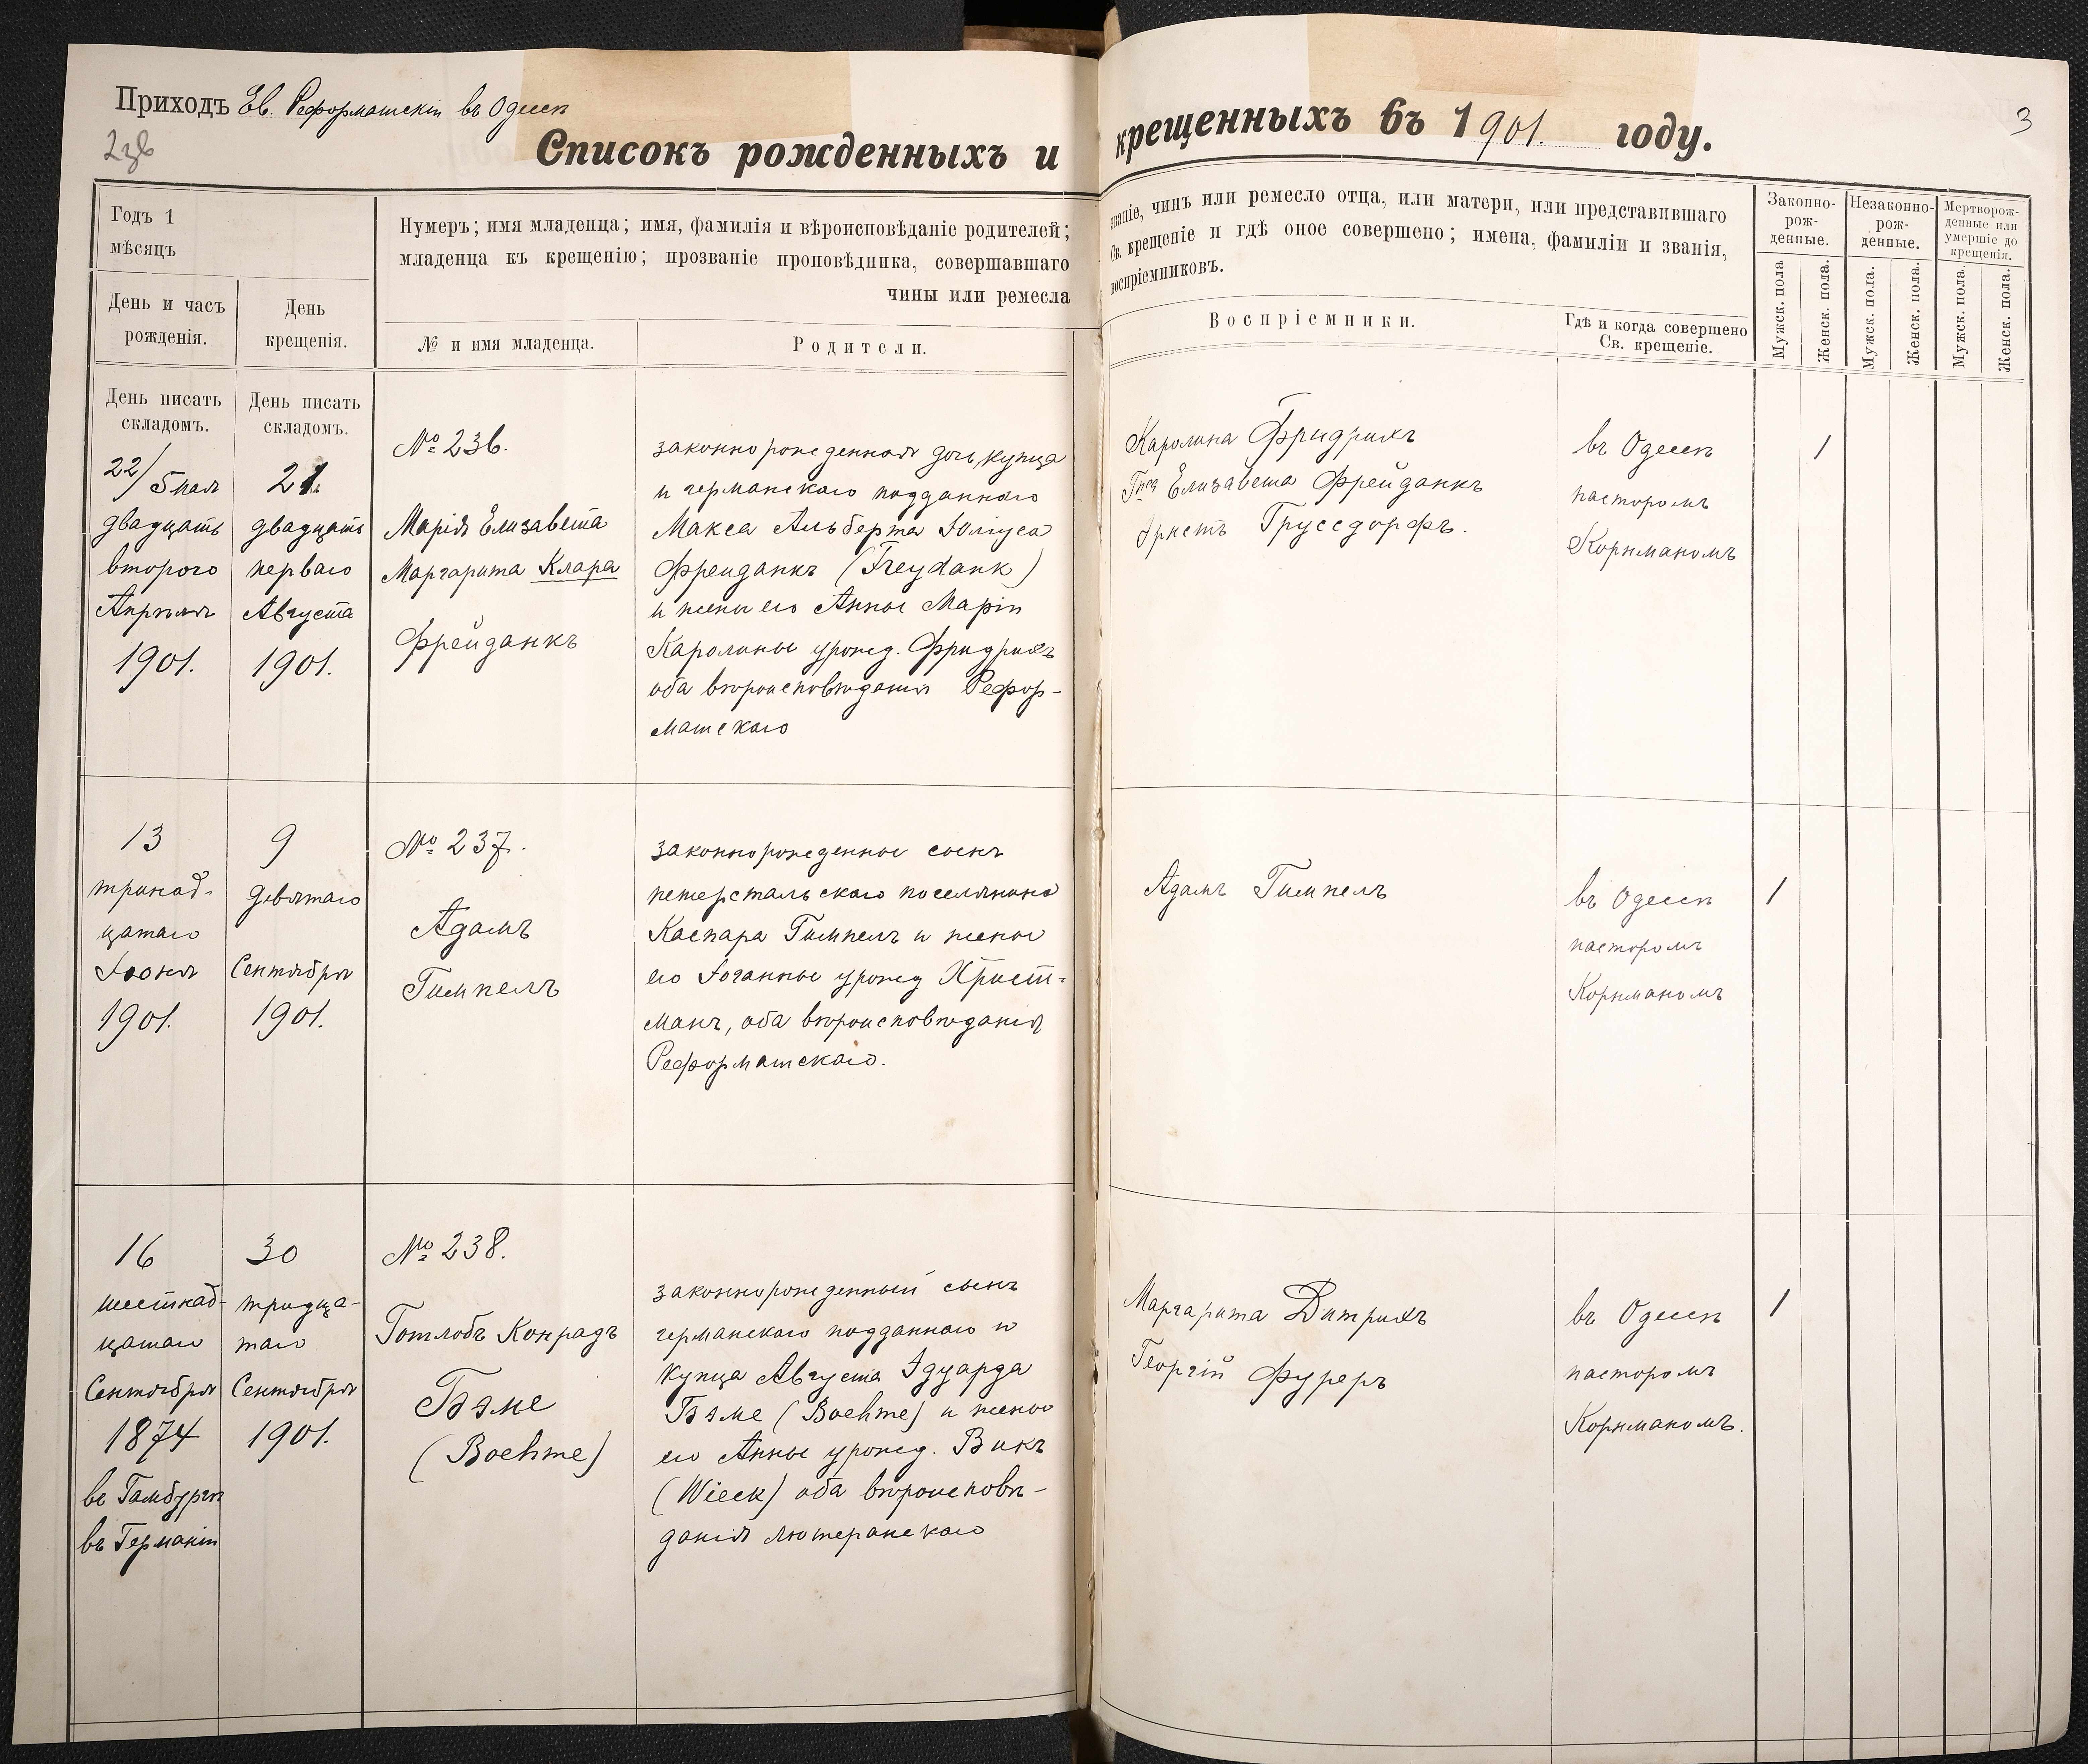 Приходъ Ев. Реформатскій въ Одессѣ
Списокъ рожденныхъ и крещенныхъ въ 1901. году.
3
Годъ 1
мѣсяцъ
День и часъ
рожденія.
День
крещенія.
Нумеръ; имя младенца; имя, фамилія и вѣроисповѣданіе родителей;
младенца къ крещенію; прозваніе проповѣдника, совершавшаго
чины или ремесла
№ и имя младенца.
Родители.
званіе, чинъ или ремесло отца, или матери, или представившаго
Св. крещеніе и гдѣ оное совершено; имена, фамиліи и званія,
воспріемниковъ.
Воспріемники.
Гдѣ и когда совершено
Св. крещеніе.
Законно-
рож-
денные.
Незаконно-
рож-
денные.
Мертворож-
денные или
умершіе до
крещенія.
Мужск. пола
Женск. пола.
Мужск. пола.
Женск. пола.
Мужск. пола.
Женск. пола.
День писать
складомъ.
День писать
складомъ.
22/5 мая
двадцать
второго
Апрѣля
1901.
21
двадцать
перваго
Августа
1901.
№ 236.
Марія Елизавета
Маргарита Клара
Фрейданкъ
законнорожденная дочь купца
и германскаго подданнаго
Макса Альберта Юліуса
Фрейданкъ (Freydank)
и жены его Анны Маріи
Каролины урожд. Фридрихъ
оба вѣроисповѣданія Рефор-
матскаго
Каролина Фридрихъ
Елизавета Фрейданкъ
Эрнстъ Груссдорфъ.
въ Одессѣ
пасторомъ
Корнманомъ
1
13
тринад-
цатаго
Іюня
1901.
9
девятаго
Сентября
1901.
№ 237.
Адамъ
Гимпелъ
законнорожденные сынъ
петерстальскаго поселянина
Каспара Гимпелъ и жены
его Іоганны урожд Христ-
манъ, оба вѣроисповѣданія
Реформатскаго.
Адамъ Гимпелъ
въ Одессѣ
пасторомъ
Корнманомъ
1
16
шестнад-
цатаго
Сентября
1874
въ Гамбургѣ
въ Германіи
30
тридца-
таго
Сентября
1901.
№ 238.
Готлобъ Конрадъ
Бэме
(Boehme)
законнорожденный сынъ
германскаго подданнаго и
купца Августа Эдуарда
Бэме (Boehme) и жены
его Анны урожд. Викъ
(Wieck) оба вѣроисповѣ-
данія лютеранскаго
Маргарита Дитрихъ
Георгій Фуреръ
въ Одессѣ
пасторомъ
Корнманомъ.
1